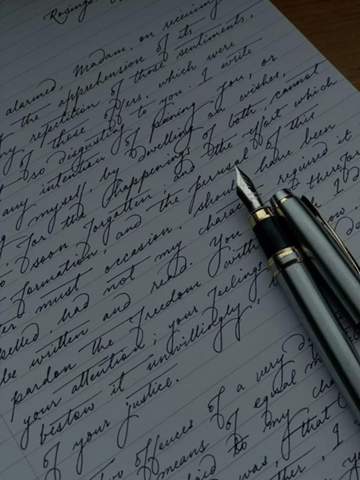 Rosings
alarmed, Madam, on receiving
the apprehension of its
any repetition of those sentiments,
of those offers, which were
so disgusting to you. I write
any intention of paining you, or
myself, by dwelling on wishes,
for the happiness of both, cannot
soon forgotten; and the effort which
formation, and the perusal of this
must occasion, should have been
had not my character required it
be written and read. You
pardon the freedom with
your attention; your feelings,
bestow it unwillingly,
of your justice.
offences of a very
means of equal
to my
was, that